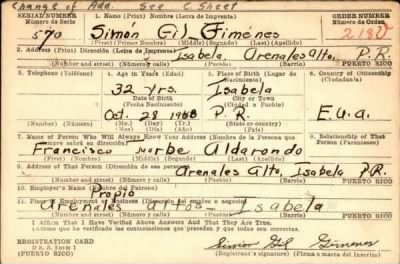 Change of Add. See C. Sheet
SERIAL NUMBER 1. Name (Print) Nombre (Letra de Imprenta) ORDER NUMBER
Número de Serie Número de Orden
570 Simón Gil Jiménes 2180
(First) (Primer Nombre) (Middle) (Segundo) (Last) (Apellido)
2. Address (Print) (Dirección) (Letra de Imprenta)
Isabela Arenales Altos, P.R.
(Number and street) (Número y calle) (Town) (Pueblo) PUERTO RICO
3. Telephone (Teléfono) 4. Age in Years (Edad) 5. Place of Birth (Lugar de Nacimiento) 6. Country of Citizenship (Ciudadanía)
32 yrs. Isabela
Date of Birth City or Town
(Fecha Nacimiento) (Ciudad o Pueblo)
Oct. 28 P.R. E.U.A.
(Mo.) (Day) (Yr.)
(Mes) (Día) (Año)
7. Name of Person Who Will Always Know Your Address (Nombre de la Persona que siempre sabrá su dirección) 8. Relationship of That Person (Parentesco)
Francisco Aldarondo
(First) (Nombre) (Middle) (Segundo) (Last) (Apellido)
9. Address of That Person (Dirección de esa persona)
Arenales Alto, Isabela P.R.
(Number and street) (Número y calle) (Town) (Pueblo) PUERTO RICO
10. Employer's Name (Nombre del Patrono)
Propio
11. Place of Employment or Business (Dirección del empleo o negocio)
Arenales Altos - Isabela
(Number and street) (Número y calle) (Town) (Pueblo) PUERTO RICO
I Affirm That I Have Verified Above Answers And That They Are True.
(Afirmo que he verificado las contestaciones que preceden y que todas son correctas.)
REGISTRATION CARD
D. S. S. Form 1
(PUERTO RICO)
Simón Gil Gimenes
Registrant's signature) (Firma o marca del inscrito)